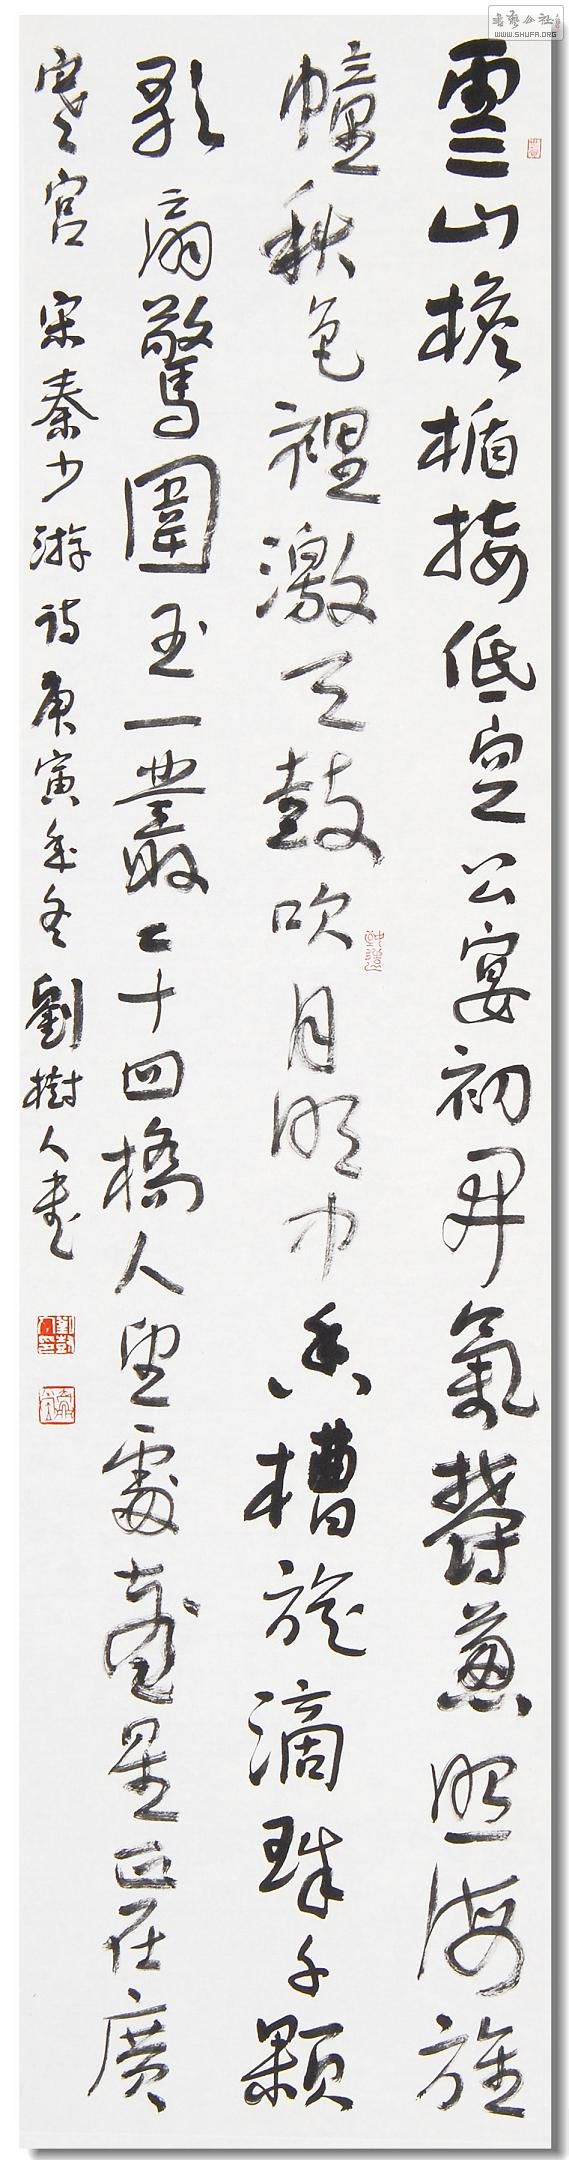 雲山檐楯接低空公宴初開氣鬱蔥照海旌
幢秋色裡激天鼓吹月明中香槽旋滴珠千顆
歌扇驚圍玉一叢二十四橋人望處臺星正在廣
寒宮 宋秦少游詩庚寅年冬 劉樹人書
書藝公社
WWW.SHUFA.ORG